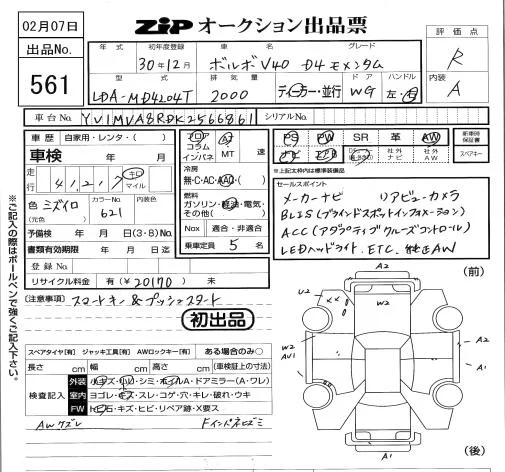 02月07日
ZIP オークション出品票
評価点
R
出品No.
561
年式
初年度登録
車名
グレード
30年12月
ボルボ V40 D4 モメンタム
型式
排気量
ドア
ハンドル
内装
LDA-MD4204T
2000
ディーラー・並行
WG
左・右
A
車台No.
YV1MVA8RDK2566861
シリアルNo.
車歴
自家用・レンタ・( )
フロア
コラム
インパネ
AT
MT
速
PS
PW
SR
革
AW
新車時保証書
車検
年
月
社外ナビ
社外AW
スペアキー
走行
41,217
キロ
マイル
冷房
無・C・AC・AAC・( )
※上記太わ内は標準装備品
色
ミズイロ
(元色)
カラーNo.
621
内装色
燃料
ガソリン・軽油・電気・
その他( )
セールスポイント
メーカーナビ リアビューカメラ
BLIS(ブラインドスポットインフォメーション)
ACC(アダプティブクルーズコントロール)
LEDヘッドライト ETC 純正AW
予備検
年
月
日(3・8)No.
書類有効期限
年
月
日迄
Nox
適合・非適合
登録No.
乗車定員
5
名
リサイクル料金
有(¥20170)
無
(注意事項)
スマートキー&プッシュスタート
初出品
※ご記入の際はボールペンで強くご記入下さい。
スペアタイヤ[有] ジャッキ工具[有] AWロックキー[有] ある場合のみ○
長さ
cm
幅
cm
高さ
cm
(車検証上の寸法)
検査記入
外装
小キズ・小凹・シミ・ホイルA・ドアミラー(A・ワレ)
室内
ヨゴレ・キズ・スレ・コゲ・穴・キレ・破れ・ウキ
FW
トビ石・キズ・ヒビ・リペア跡・X要ス
AWクズレ
Fインナビズミ
(前)
A2
U2
W2
W2
AU1
A2
A1
A1
(後)